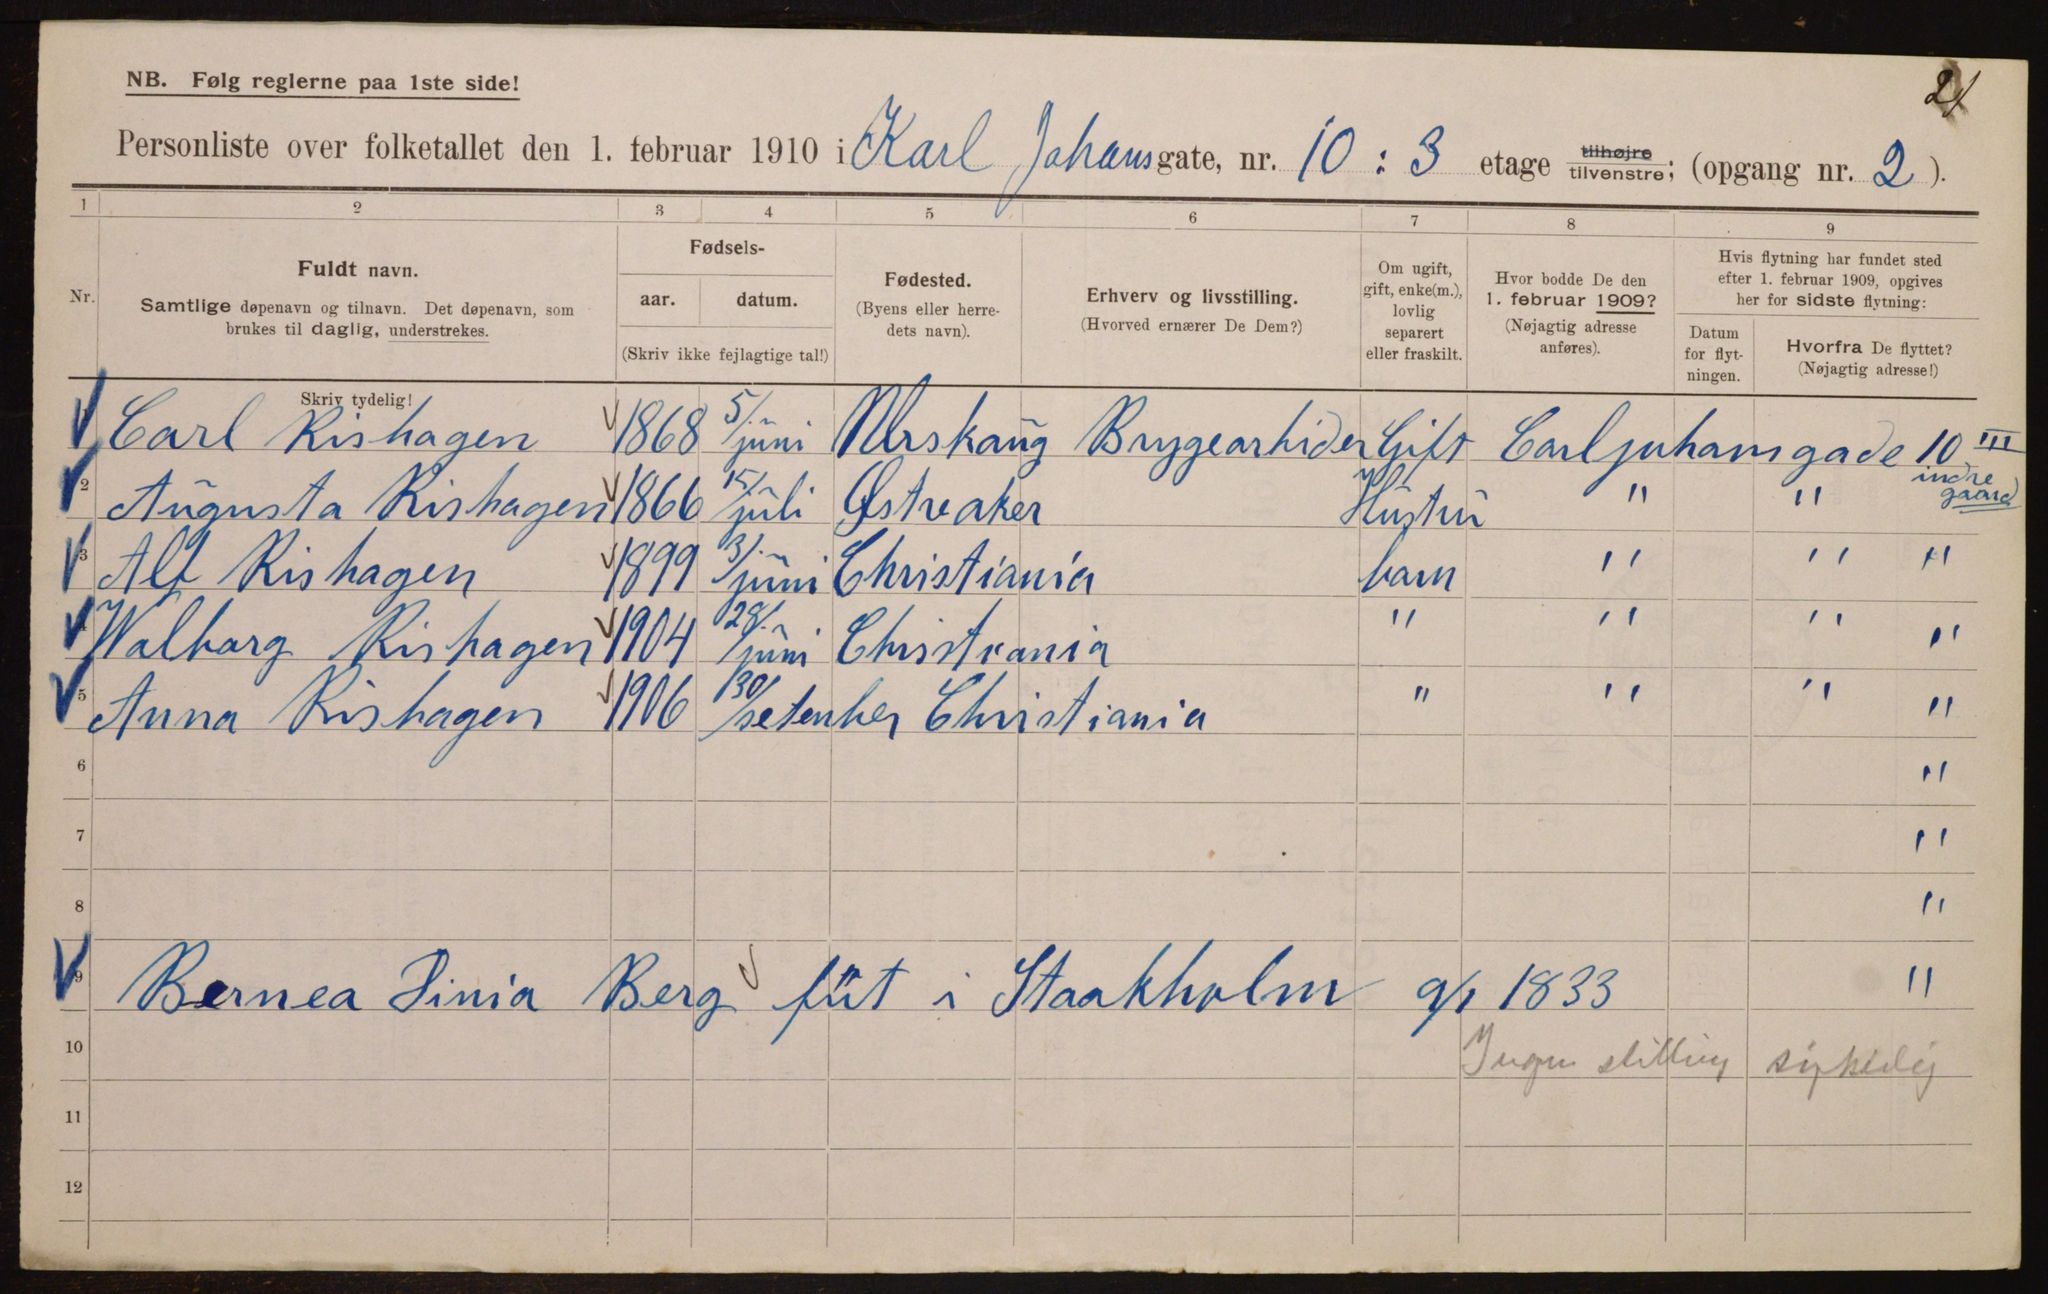 21
NB. Følg reglerne paa 1ste side!
Personliste over folketallet den 1. februar 1910 i Karl Johansgate, nr. 10 : 3 etage tilhøjre tilvenstre; (opgang nr. 2 ).
1 2 3 4 5 6 7 8 9
Nr.
Fuldt navn.
Samtlige døpenavn og tilnavn. Det døpenavn, som
brukes til daglig, understrekes.
Skriv tydelig!
Fødsels-
aar. datum.
(Skriv ikke fejlagtige tal!)
Fødested.
(Byens eller herre-
dets navn).
Erhverv og livsstilling.
(Hvorved ernærer De Dem?)
Om ugift,
gift, enke(m.),
lovlig
separert
eller fraskilt.
Hvor bodde De den
1. februar 1909?
(Nøjagtig adresse
anføres).
Hvis flytning har fundet sted
efter 1. februar 1909, opgives
her for sidste flytning:
Datum
for flyt-
ningen.
Hvorfra De flyttet?
(Nøjagtig adresse!)
1 Carl Rishagen 1868 5/juni Urskaug Bryggearbider Gift Carljohansgade 10 III
indre
gaard
2 Augusta Rishagen 1866 15/juli Østreaker Hustru " "
3 Alf Rishagen 1899 3/juni Christiania barn " " "
4 Walborg Rishagen 1904 28/juni Christiania " " " "
5 Anna Rishagen 1906 30/setenber Christiania " " " "
6 "
7 "
8 "
9 Bernea Dinia Berg füt i Staakholm 9/1 1833 "
10 Ingen stilling sykelig
11
12